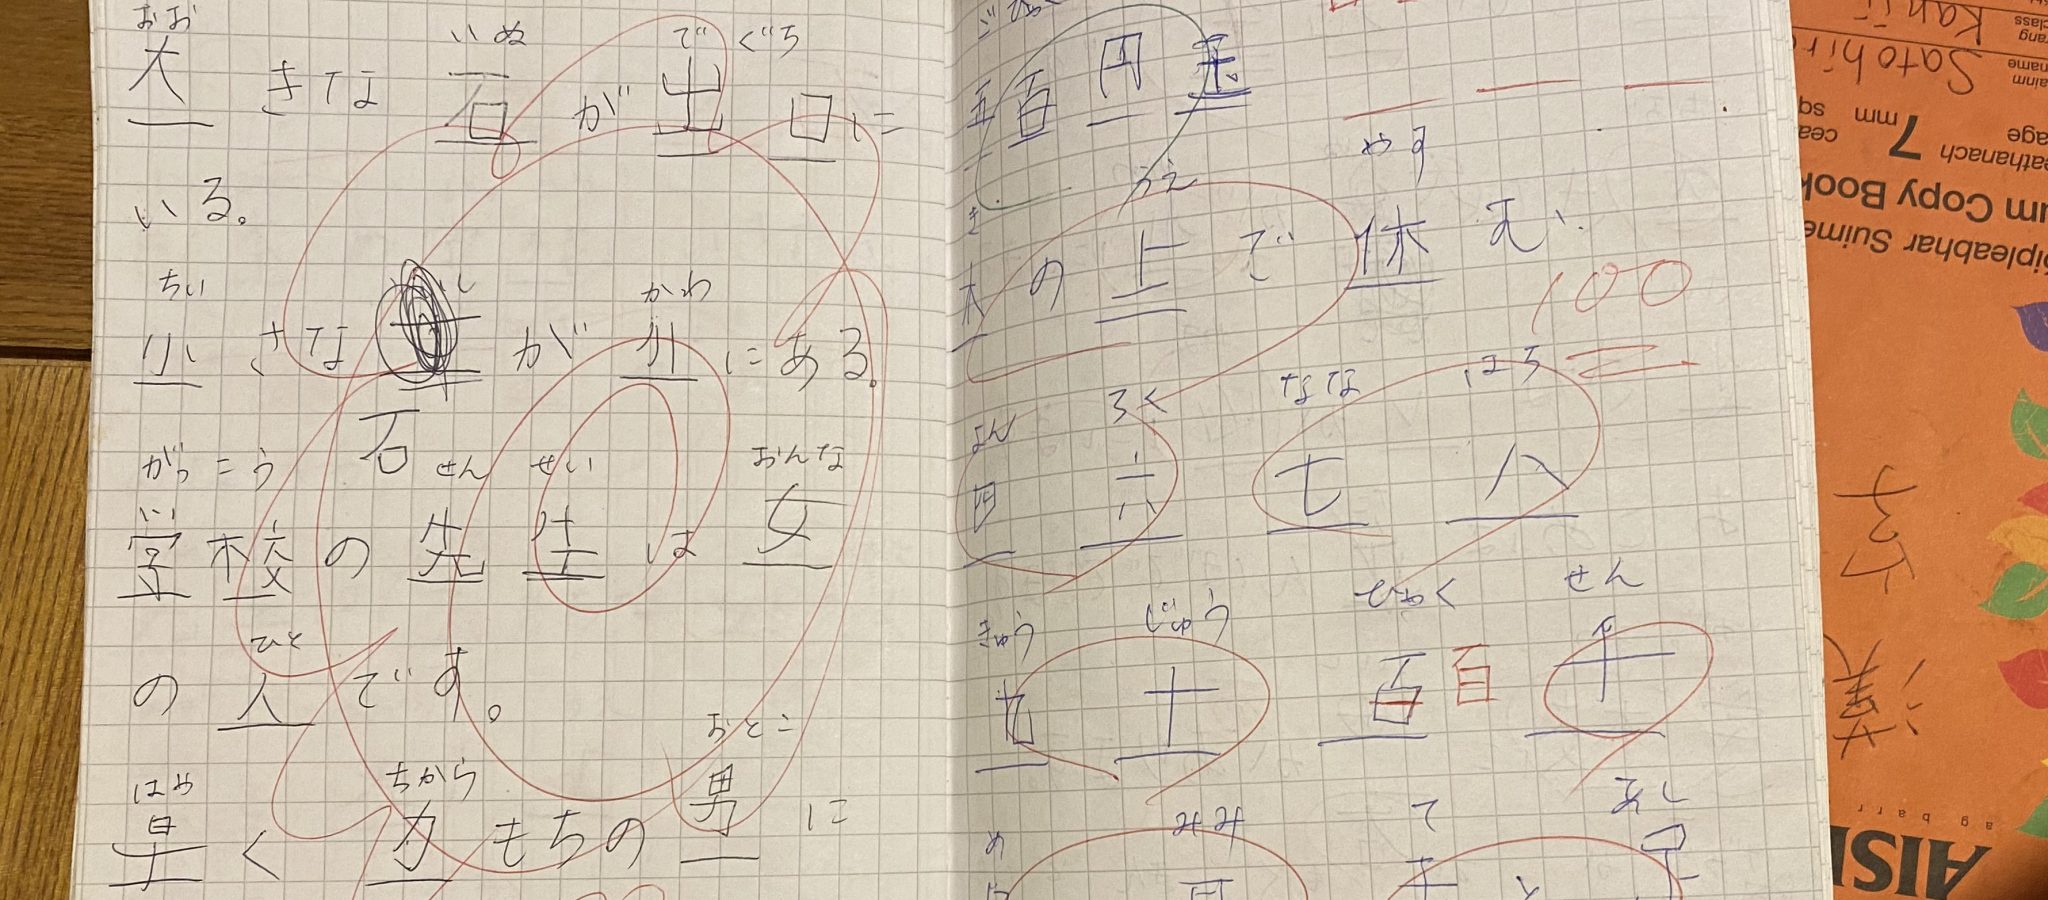 おお いぬ で ぐち
大 きな 石 が 出 口 に
いる。
ちい かわ
小 さな が 川 にある。
石
がっこう せん せい おんな
学 校 の 先 生 は 女
ひと
の 人 です。
はや ちから おとこ
早 く 力 もちの 男 に
五 百 円 玉
き うえ やす
木 の 上 で 休 む。
100
よん ろく なな はち
四 六 七 八
きゅう じゅう ひゃく せん
九 十 百 百 千
め みみ て あし
Kanji
name
7 mm
um Copy Book